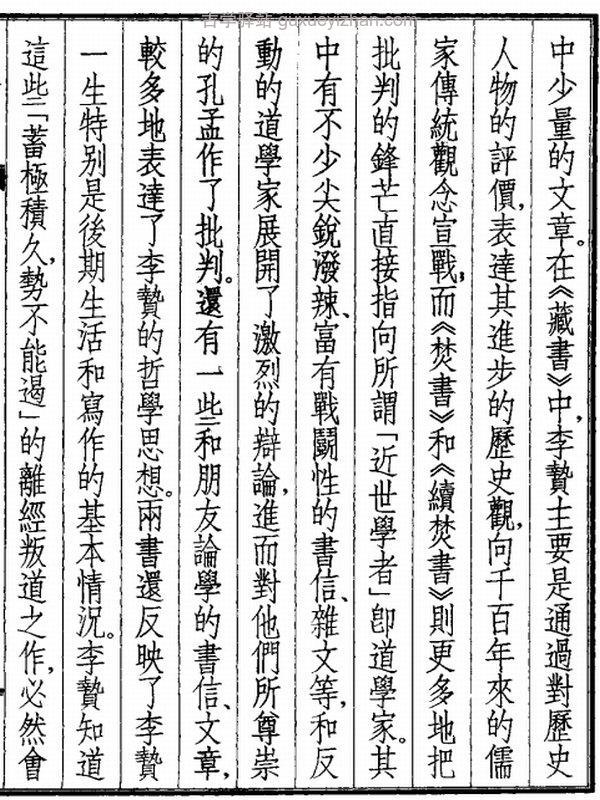 古学驿站 guxueyizhan.com
中少量的文章。在《藏書》中,李贄主要是通過對歷史
人物的評價,表達其進步的歷史觀,向千百年來的儒
家傳統觀念宣戰,而《焚書》和《續焚書》則更多地把
批判的鋒芒直接指向所謂「近世學者」卽道學家。其
中有不少尖銳潑辣、富有戰鬭性的書信、雜文等,和反
動的道學家展開了激烈的辯論,進而對他們所尊崇
的孔孟作了批判。還有一些和朋友論學的書信、文章,
較多地表達了李贄的哲學思想。兩書還反映了李贄
一生特別是後期生活和寫作的基本情況。李贄知道
這些「蓄極積久,勢不能遏」的離經叛道之作,必然會